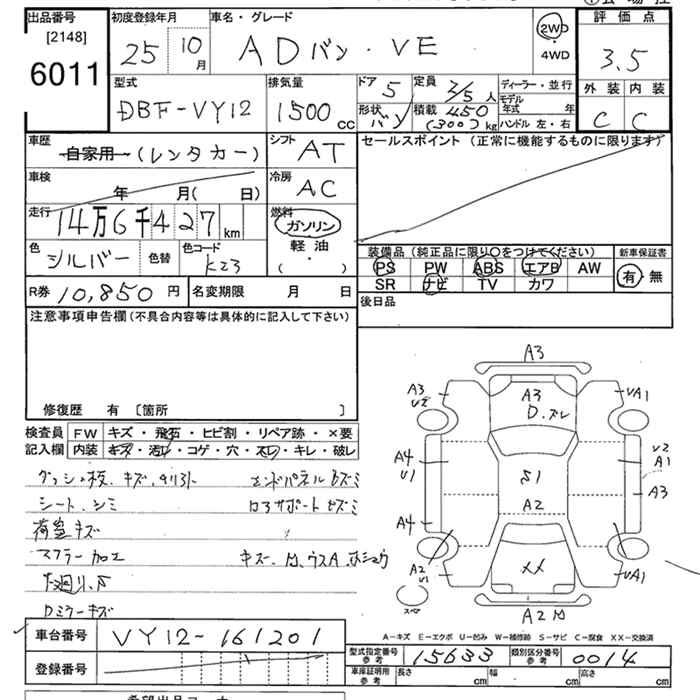 出品番号 初度登録年月 車名・グレード 2WD ・ 4WD 評価点
[2148]
6011 25 10月 ADバン・VE 3.5
型式 排気量 ドア 5 定員 2/5人 ディーラー・並行 外装 内装
DBF-VY12 1500cc 形状 バン 積載 450 (300)kg モデル年式 年 ハンドル 左・右 C C
車歴 自家用 (レンタカー) シフト AT セールスポイント (正常に機能するものに限ります)
車検 年 月( 日) 冷房 AC
走行 14万6千427km 燃料 ガソリン
軽油
・( )
色 シルバー 色替 色コード K23
装備品(純正品に限り○をつけてください) 新車保証書
PS PW ABS エアB AW 有・無
SR ナビ TV カワ
R券 10,850円 名変期限 月 日 後日品
注意事項申告欄(不具合内容等は具体的に記入して下さい)
修復歴 有 〔箇所 〕
検査員 FW キズ・飛石・ヒビ割・リペア跡・×要
記入欄 内装 キズ・汚レ・コゲ・穴・スレ・キレ・破レ
シート、シミ
荷室キズ
マフラー加工 キズ
Dミラーキズ
A3
A3 U2 A3 UA1
D.ズレ
A4 U1 S1 U2 A1
A2 A3
A4
A2 U1 XX UA1
スペ
A2
A−キズ E−エクボ U−凹み W−補修跡 S−サビ C−腐食 XX−交換済
車台番号 VY12-161201
型式指定番号 参考 15633 類別区分番号 参考 0014
登録番号
車庫証明用 参考 長さ cm 幅 cm 高さ cm